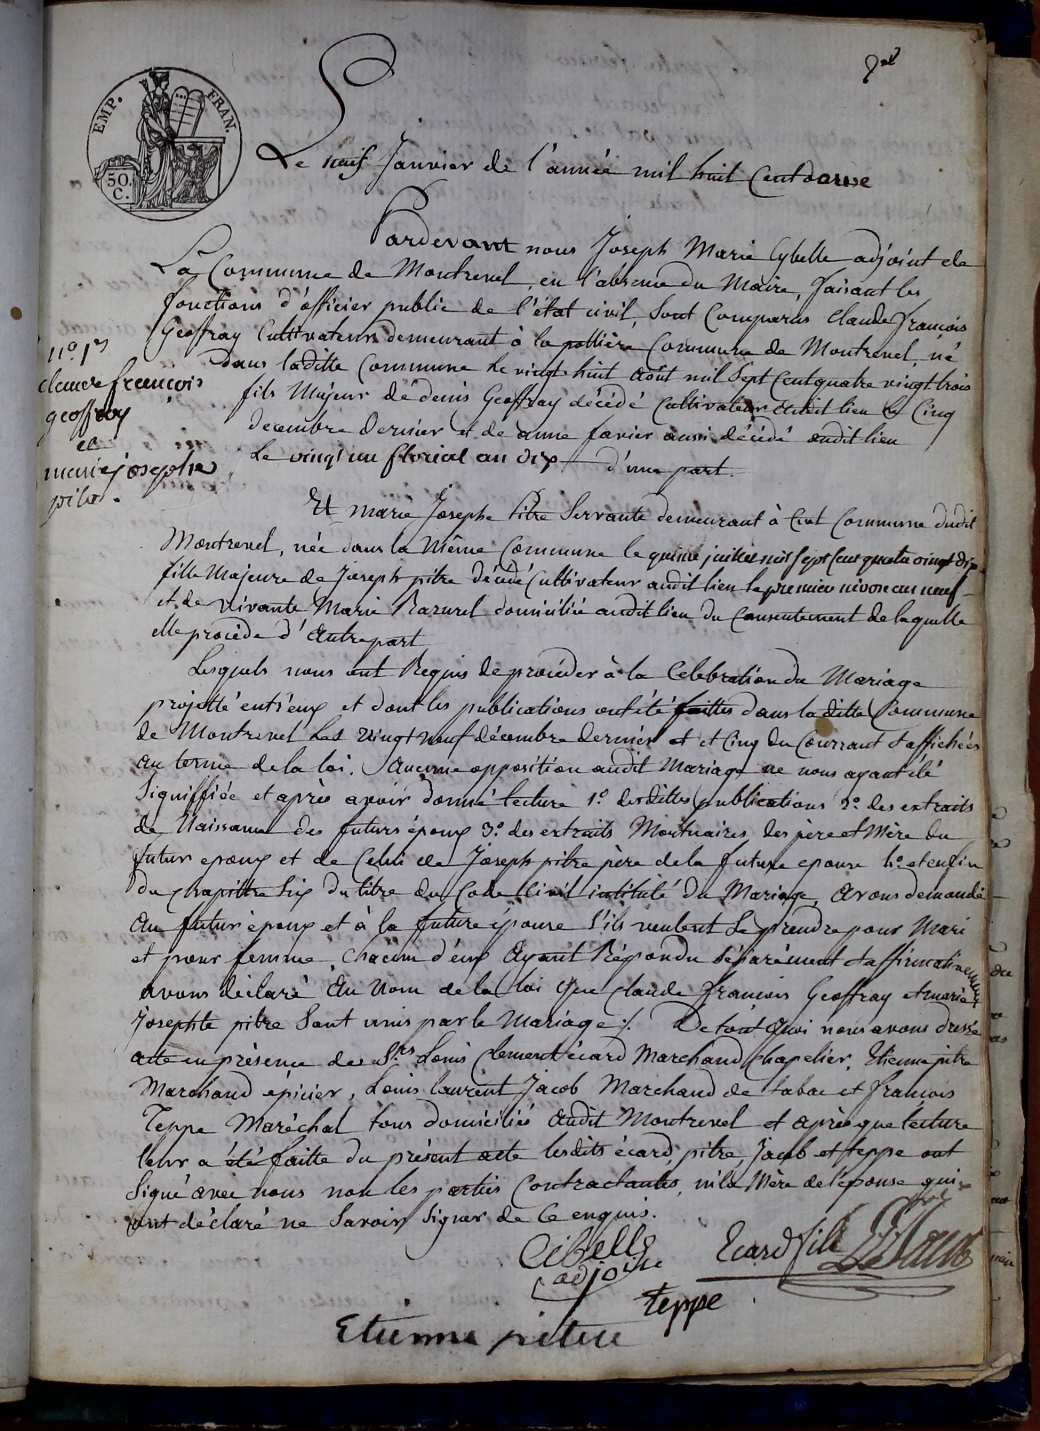 EMP. FRAN.
50.
C.
Le neuf Janvier de l'année mil huit Cent douse
Pardevant nous Joseph Marie Cybelle adjoint de
La Commune de Montrevel, en l'absence du Maire, faisant les
fonctions d'officier public de l'état civil, Sont Comparus Claude françois
Geoffray Cultivateur demeurant à la Commune de Montrevel, né
Dans laditte Commune le vingt huit Août mil Sept Cent quatre vingt trois
fils Majeur de denis Geoffray décédé Cultivateur audit lieu le Cinq
Decembre dernier et de anne favier aussi décédé audit lieu
Le vingt un floréal an dix d'une part.
n.o 1er
claude francois
geoffray
et
marie josephe
pitre.
Et Marie Josephe Pitre Servante demeurant à Commune dudit
Montrevel, née dans la Même Commune le quinze juillet mil Sept Cent quatre vingt dix
fille Majeure de Joseph pitre décédé Cultivateur audit lieu le premier nivose an neuf
et de vivante Marie Razurel domiciliée audit lieu du Consentement de laquelle
elle procède d'Autre part
Lesquels nous ont Requis de procéder à la Celebration du Mariage
projetté entr'eux et dont les publications ont été faittes dans la ditte Commune
de Montrevel Les vingt neuf décembre dernier et Cinq du Courrant et affichées
au terme de la loi. Aucune opposition audit Mariage ne nous ayant été
Signiffiée et après avoir donné lecture 1.o desdittes publications 2.o des extraits
de Naissance des futurs époux 3.o des extraits Mortuaires des père et Mère du
futur epoux et de Celui de Joseph pitre père de la future epouse 4.o et enfin
du chapittre Six du titre du Code Civil intitulé du Mariage, avons demandé
Au futur époux et à la future épouse S'ils veulent Se prendre pour Mari
et pour femme, Chacun d'eux Ayant Répondu séparément et affirmativement
avons déclaré Au Nom de la loi que Claude François Geoffray et Marie
Josephte pitre Sont unis par le Mariage ./. De tout quoi nous avons dressé
acte en présence de Srs Louis Clement écard Marchand Chapelier, Etienne pitre
Marchand épicier, Louis laurent Jacob Marchand de tabac et françois
Teppe Maréchal tous domiciliés audit Montrevel et après que lecture
leur a été faitte du présent acte lesdits écard, pitre, Jacob et teppe ont
Signé avec nous non les parties Contractantes, ni la Mère de l'épouse qui
ont déclaré ne Savoir Signer de Ce enquis.
Cibelle
adjoint
Ecard fils
teppe
Etienne pitre